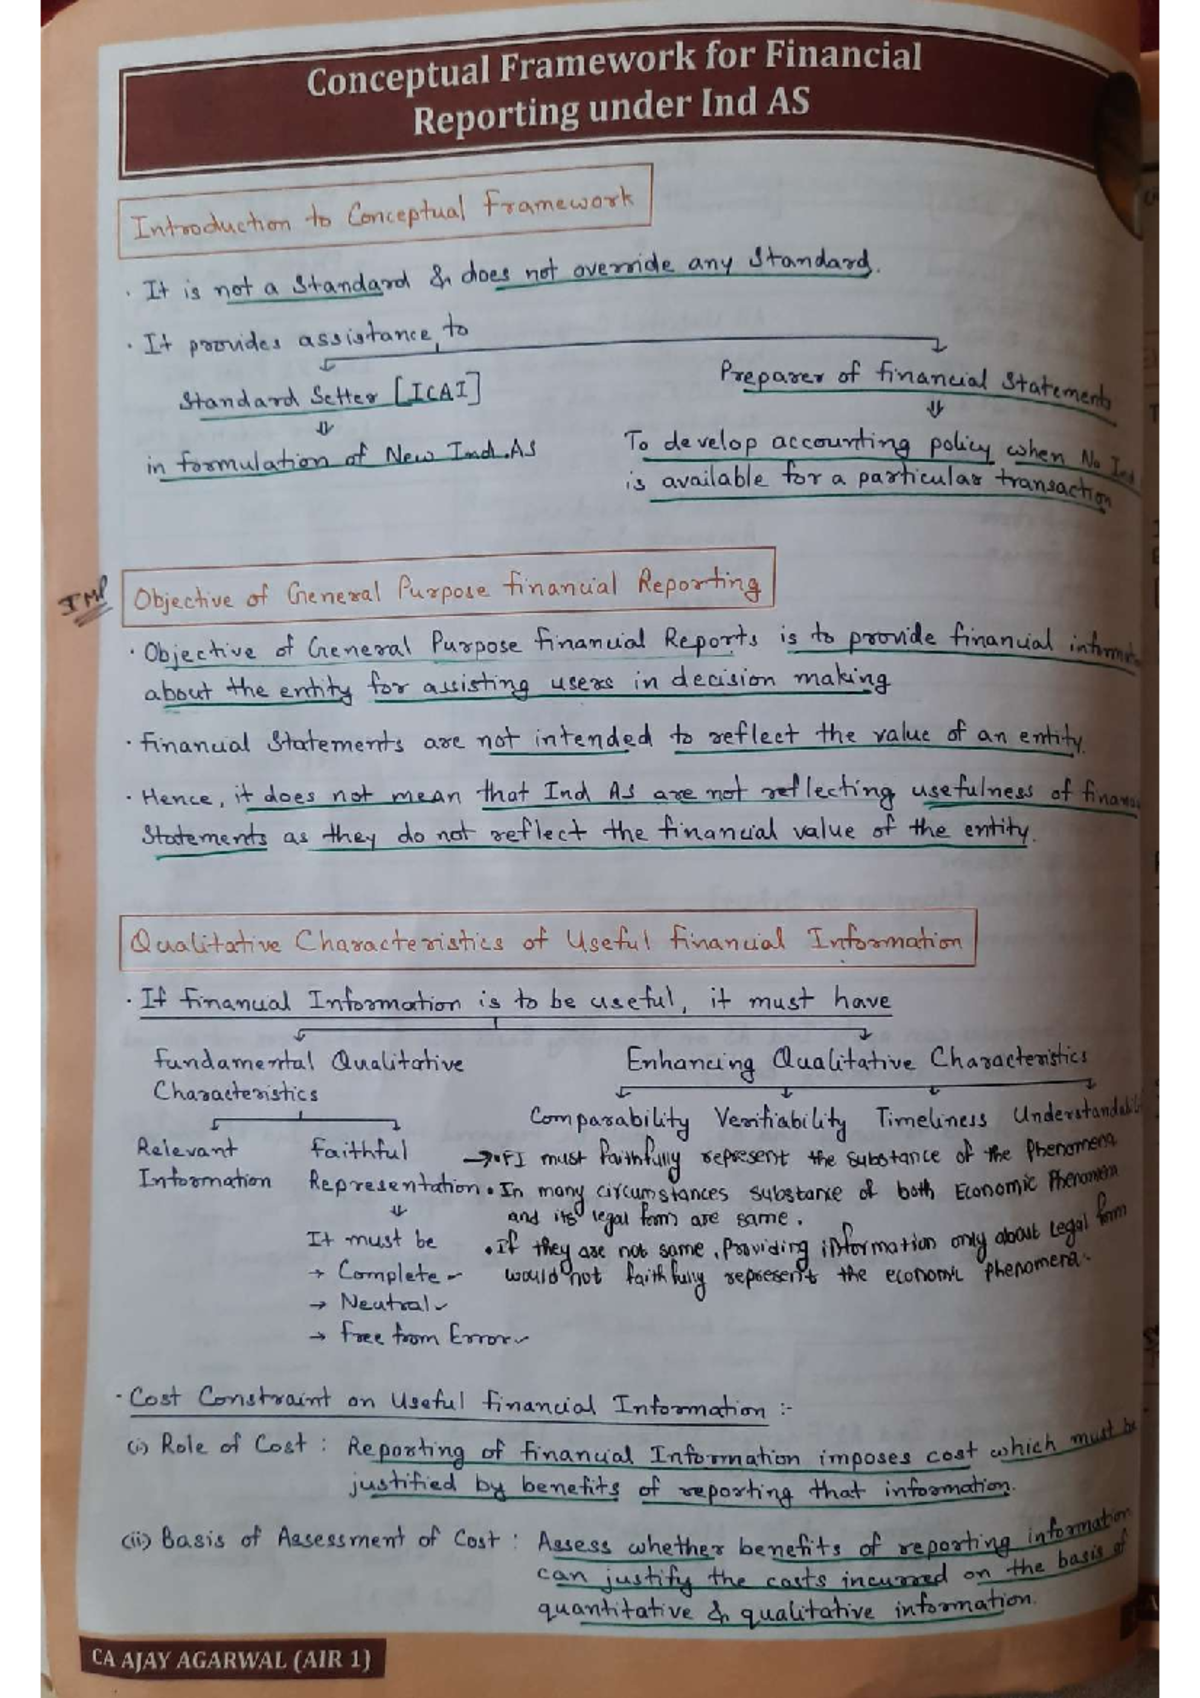 Conceptual Framework for Financial
Reporting under Ind AS
Introduction to Conceptual Framework
· It is not a Standard & does not override any Standard.
· It provides assistance to
Standard Setter [ICAI]
⇓
in formulation of New Ind.AS
Preparer of financial Statements
⇓
To develop accounting policy when No Ind
is available for a particular transaction
IMP
Objective of General Purpose financial Reporting
· Objective of General Purpose financial Reports is to provide financial
about the entity for assisting users in decision making
· financial Statements are not intended to reflect the value of an entity.
· Hence, it does not mean that Ind AS are not reflecting usefulness of
Statements as they do not reflect the financial value of the entity.
Qualitative Characteristics of Useful financial Information
· If financial Information is to be useful, it must have
fundamental Qualitative
Characteristics
Enhancing Qualitative Characteristics
Comparability Verifiability Timeliness
Relevant
Information
faithful
Representation
⇓
It must be
→ Complete
→ Neutral
→ free from Error
→ • FI must faithfully represent the substance of the Phenomena
• In many circumstances substance of both Economic Phenomena
and its legal form are same.
• If they are not same, Providing information only about Legal form
would not faithfully represent the economic phenomena.
· Cost Constraint on Useful financial Information :-
(i) Role of Cost : Reporting of financial Information imposes cost which must be
justified by benefits of reporting that information.
(ii) Basis of Assessment of Cost : Assess whether benefits of reporting information
can justify the costs incurred on the basis of
quantitative & qualitative information.
CA AJAY AGARWAL (AIR 1)